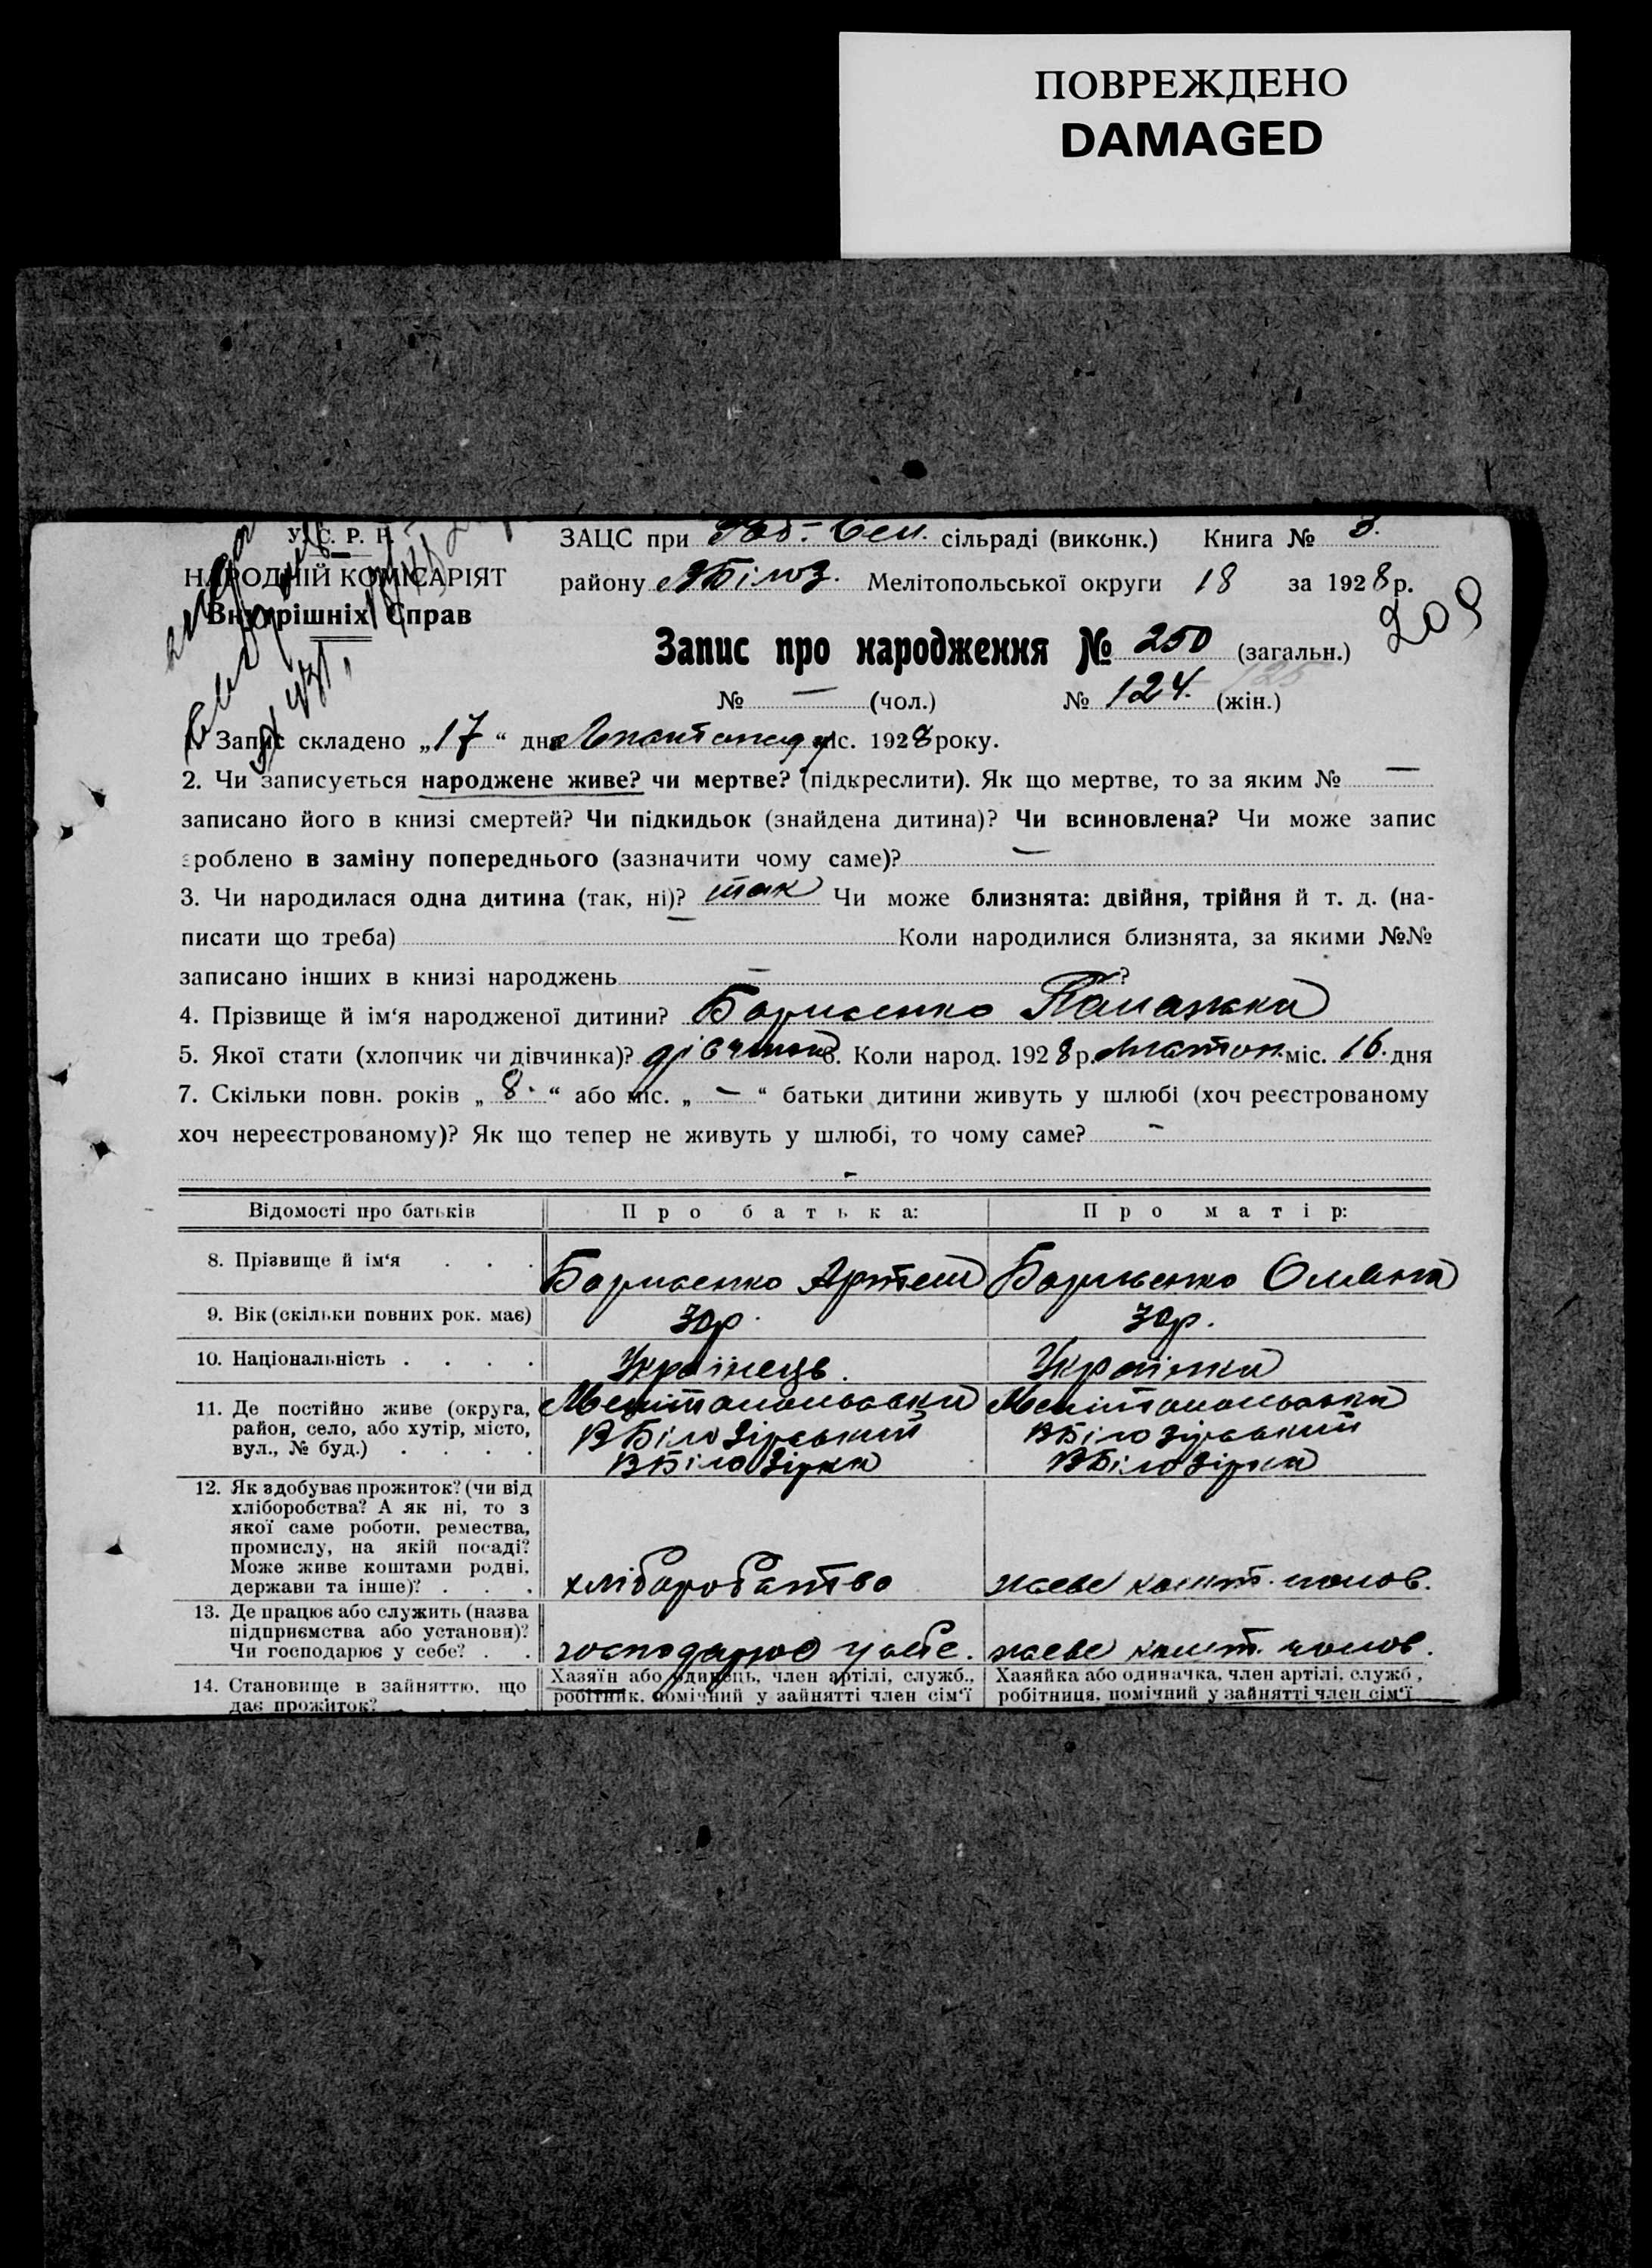 ПОВРЕЖДЕНО
DAMAGED
У. С. Р. Р.
НАРОДНІЙ КОМІСАРІЯТ
Внутрішніх Справ
ЗАЦС при сільраді (виконк.) Книга № 3.
району ВБілоз. Мелітопольської округи 18 за 1928 р.
209
Запис про народження № 250 (загальн.)
125
№ — (чол.) № 124. (жін.)
1. Запис складено „17“ дня Листопаду міс. 1928 року.
2. Чи записується народжене живе? чи мертве? (підкреслити). Як що мертве, то за яким № —
записано його в книзі смертей? Чи підкидьок (знайдена дитина)? Чи всиновлена? Чи може запис
зроблено в заміну попереднього (зазначити чому саме)? —
3. Чи народилася одна дитина (так, ні)? так Чи може близнята: двійня, трійня й т. д. (на-
писати що треба) — Коли народилися близнята, за якими №№
записано інших в книзі народжень — ?
4. Прізвище й ім‘я народженої дитини? Борисенко Палажка
5. Якої стати (хлопчик чи дівчинка)? дівчинка 6. Коли народ. 1928 р. Листоп. міс. 16. дня
7. Скільки повн. років „8.“ або міс. „—“ батьки дитини живуть у шлюбі (хоч реєстрованому
хоч нереєстрованому)? Як що тепер не живуть у шлюбі, то чому саме? —
-
Відомості про батьків Про батька: Про матір:
8. Прізвище й ім‘я . . . Борисенко Артем Борисенко Оляна
9. Вік (скільки повних рок. має) 30р. 30р.
10. Національність . . . . Українець. Українка
11. Де постійно живе (округа, Мелітопольська Мелітопольська
район, село, або хутір, місто, ВБілозірський ВБілозірський
вул., № буд.) . . . . ВБілозірка ВБілозірка
12. Як здобуває прожиток? (чи від
хліборобства? А як ні, то з
якої саме роботи, ремества,
промислу, на якій посаді?
Може живе коштами родні,
держави та інше)? . . . хліборобство живе кошт. чолов.
13. Де працює або служить (назва
підприємства або установи)?
Чи господарює у себе? . . господарює у себе. живе кошт. чолов.
14. Становище в зайняттю, що Хазяїн або одинець, член артілі, служб., Хазяйка або одиначка, член артілі, служб,
дає прожиток? . . . . робітник, помічний у зайнятті член сім‘ї робітниця, помічний у зайнятті член сім‘ї